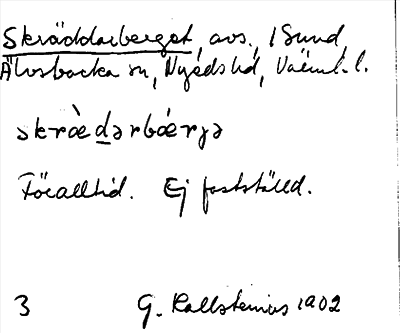 Skräddarberget, avs., i Sund,
Älvsbacka sn, Nyeds hd, Värml. l.
skræ̀dərbǽrjə
Förälltid. Ej fastställd.
3 G. Kallstenius 1902